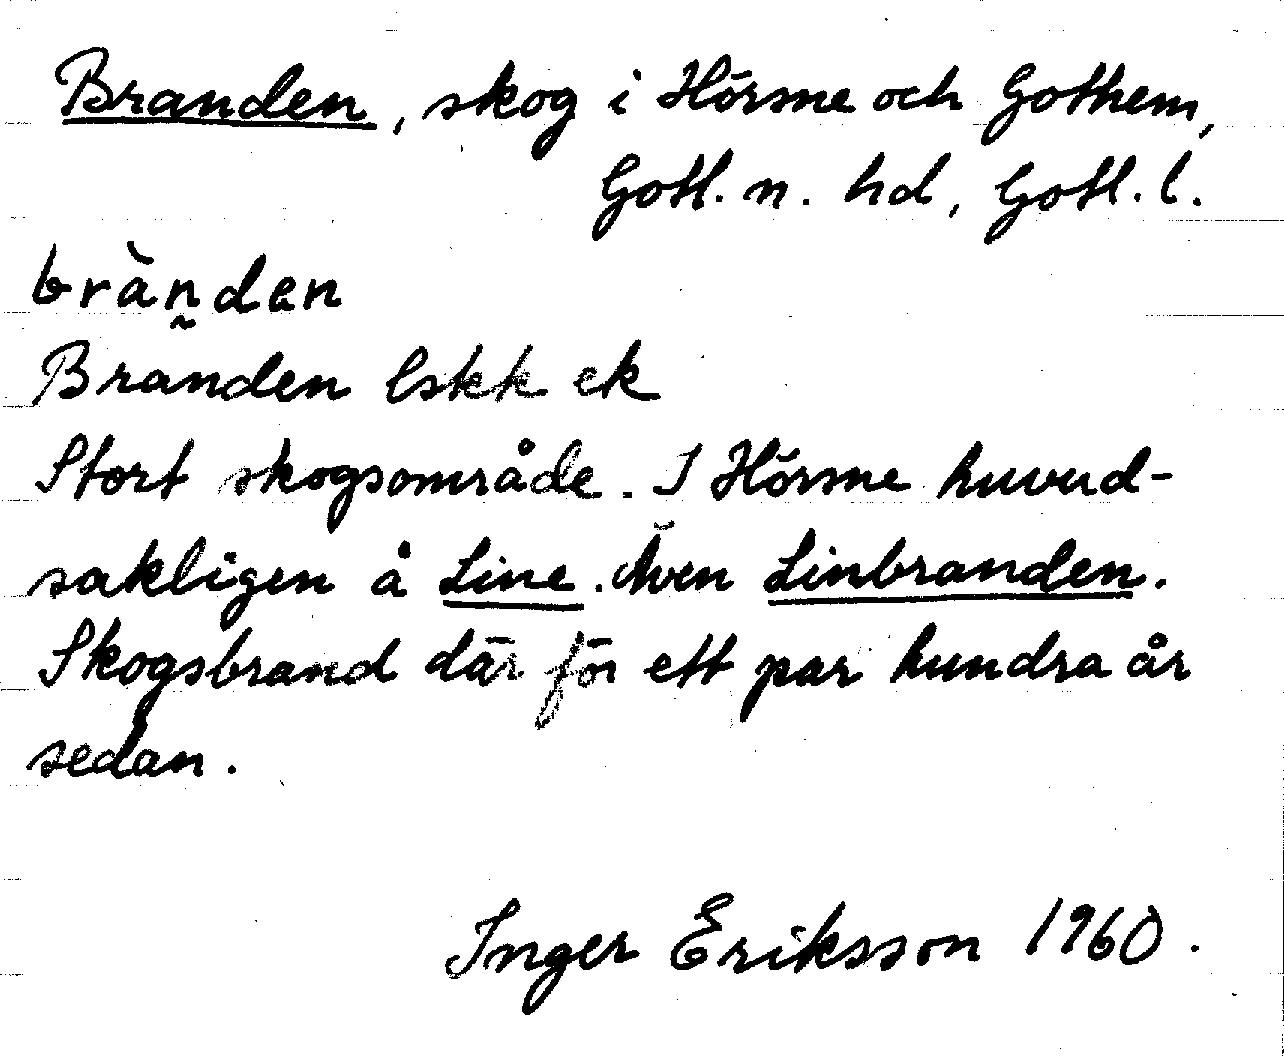 Branden, skog i Hörsne och Gothem,
Gotl. n. hd, Gotl. l.
bràn̰dən
Branden lskk ek
Stort skogsområde. I Hörsne huvud-
sakligen å Line. Även Linbranden.
Skogsbrand där för ett par hundra år
sedan.
Inger Eriksson 1960.